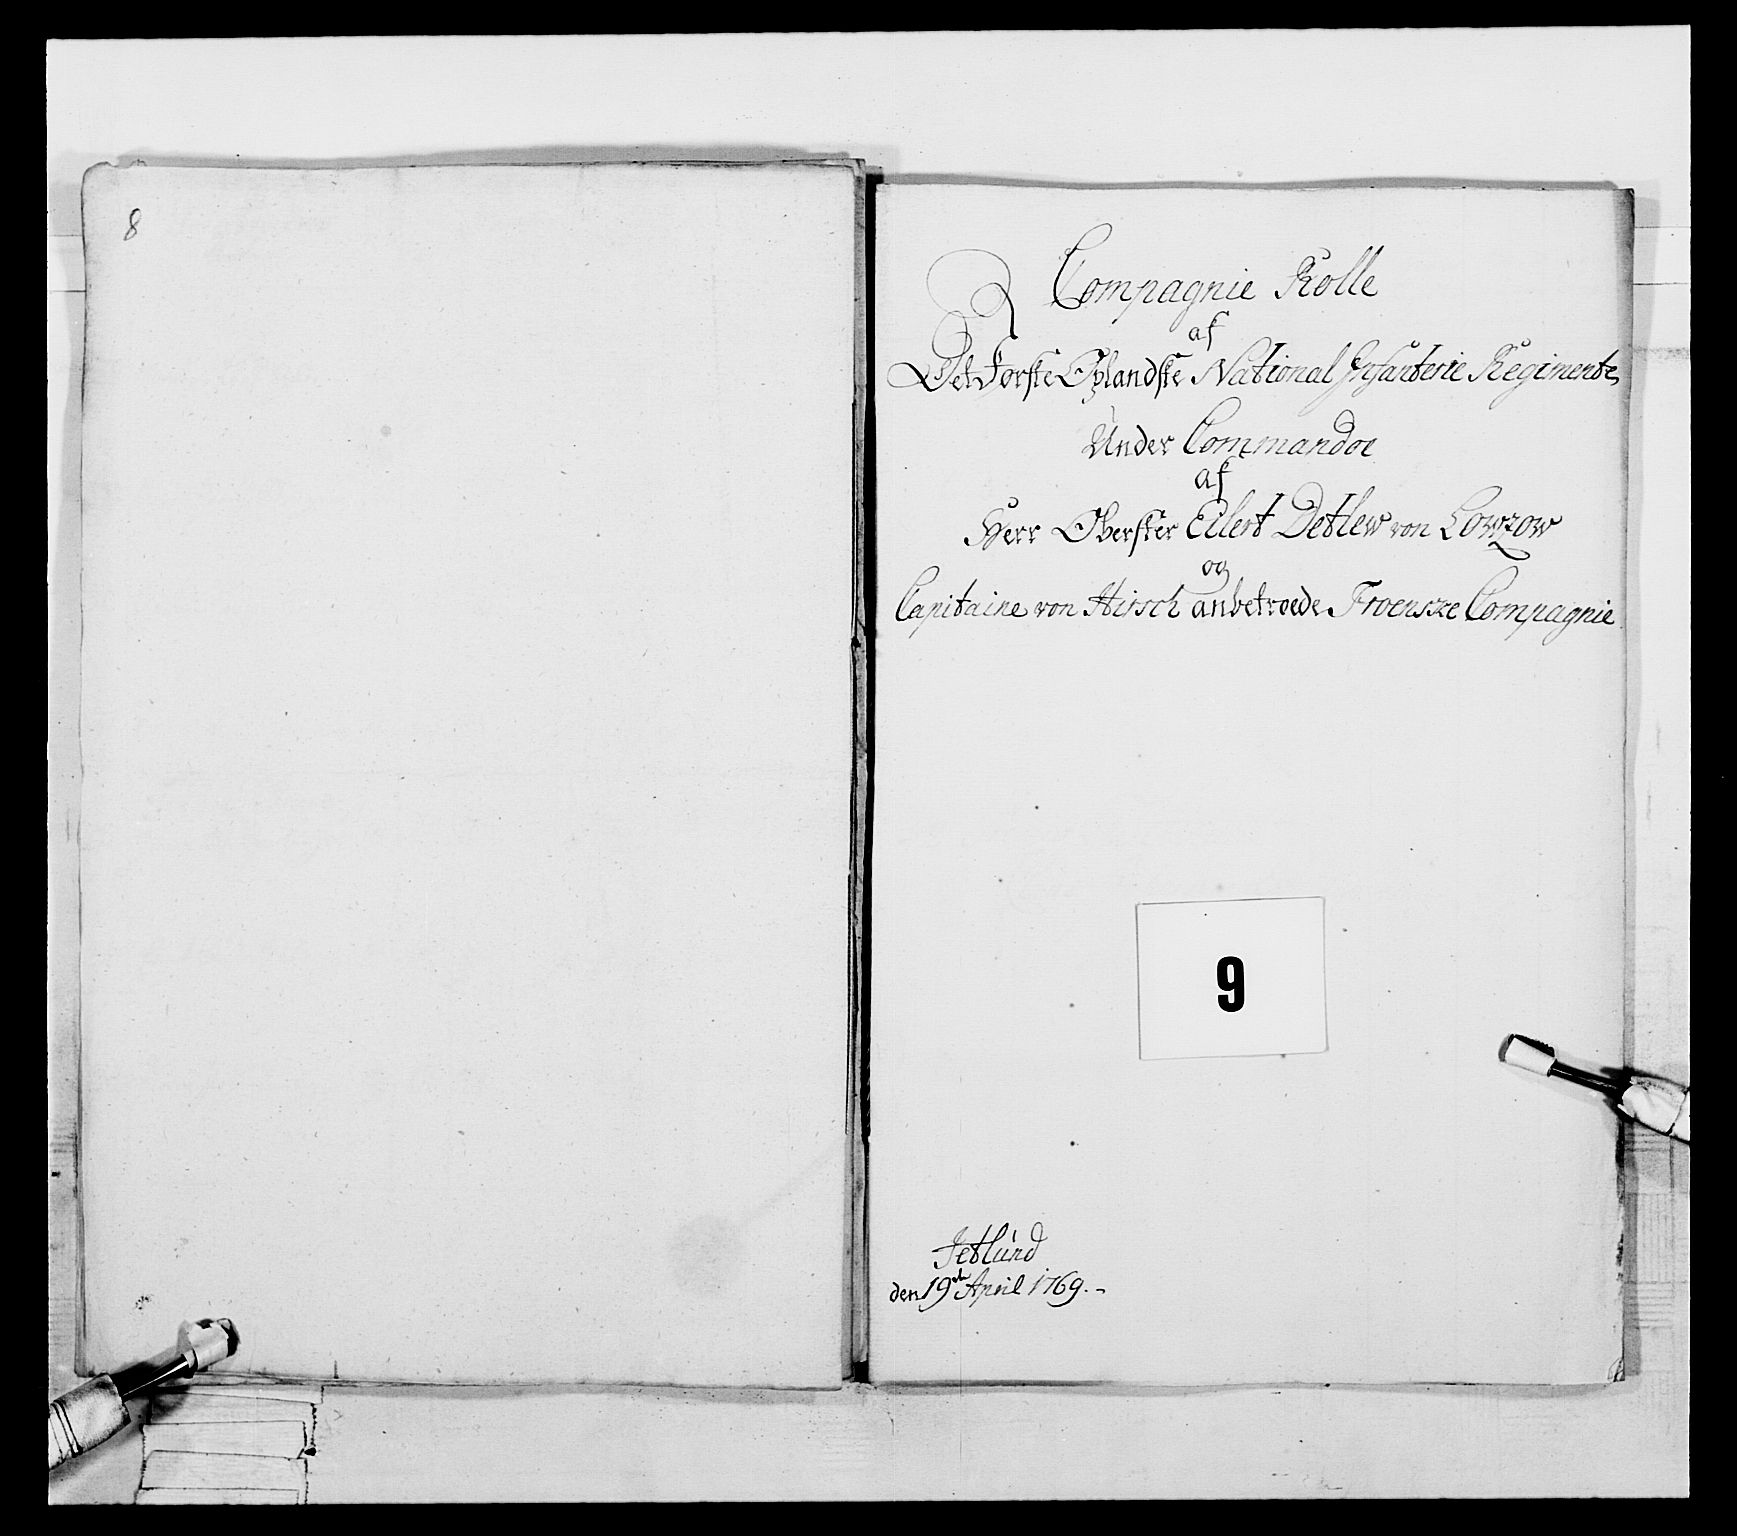 8
Compagnie Rolle
af
Det Første Oplandske National Infanterie Regimente
Under Commandoe
af
Herr Oberster Eilert Detlew von Lowzow
og
Capitaine von Hirsch anbetroede Froenske Compagnie
9
Jetlund
den 19de April 1769.-